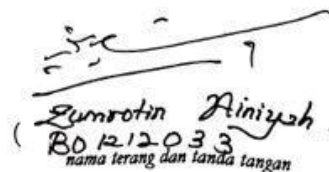 ( Zumrotin Ainiyah
B01212033
nama terang dan tanda tangan